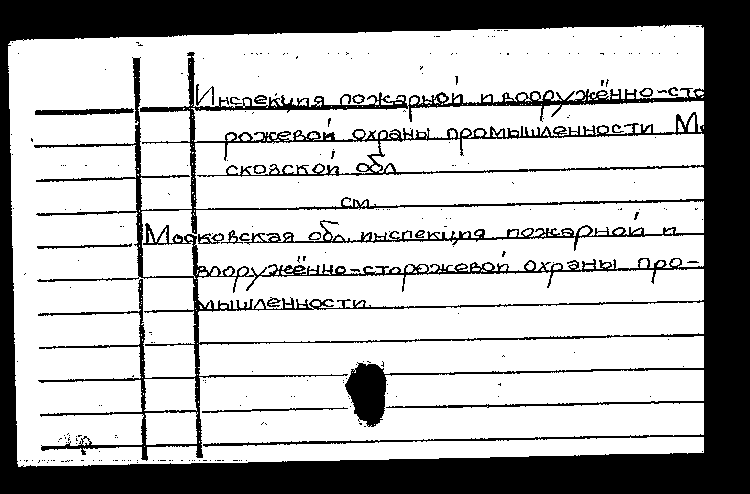 Инспекция пожарной и вооружённо-сто
рожевой охраны промышленности Мо
сковской обл
см.
Московская обл. инспекция пожарной и
вооружённо-сторожевой охраны про-
мышленности.